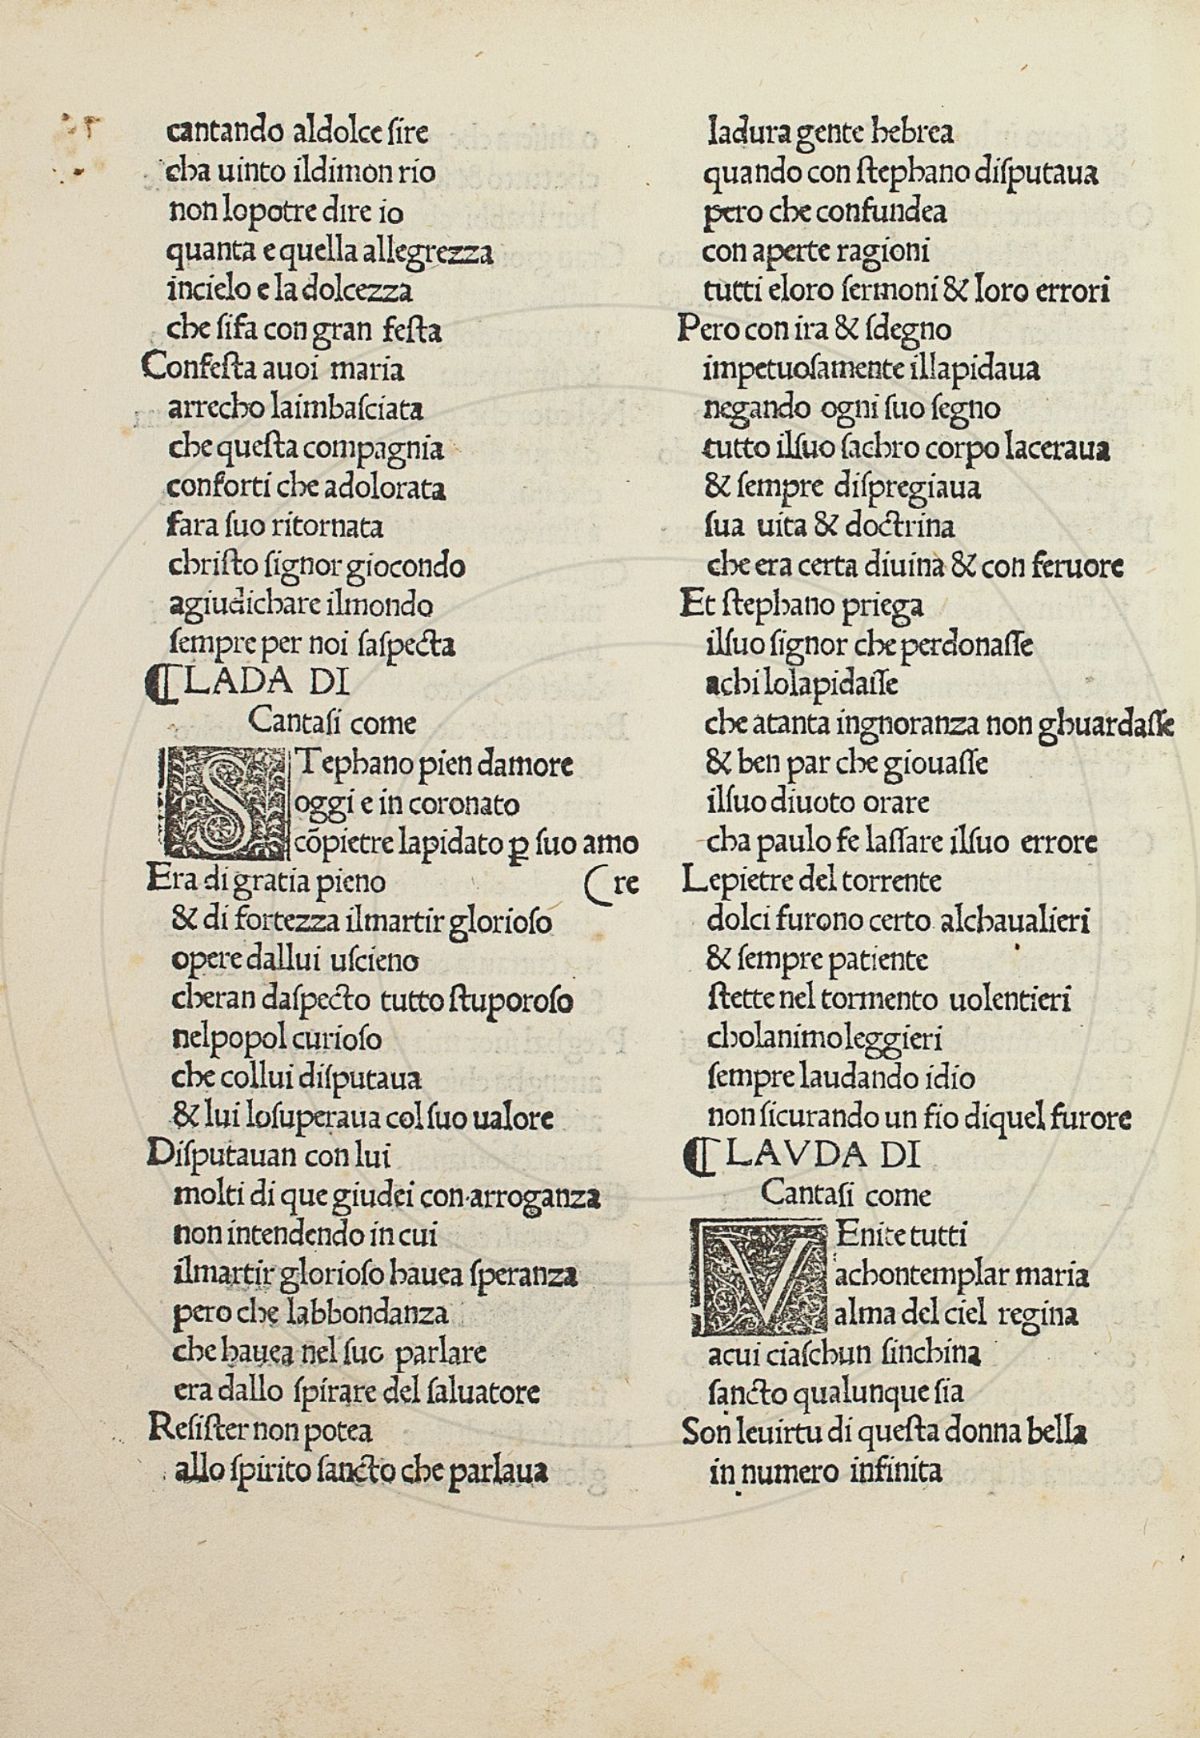 cantando aldolce ſire
cha uinto ildimon rio
non lopotre dire io
quanta e quella allegrezza
incielo e la dolcezza
che ſifa con gran feſta
Confeſta auoi maria
arrecho laimbaſciata
che queſta compagnia
conforti che adolorata
fara ſuo ritornata
chriſto ſignor giocondo
agiudichare ilmondo
ſempre per noi ſaſpecta
⸿LADA DI
Cantaſi come
STephano pien damore
oggi e in coronato
cõpietre lapidato ꝑ ſuo amo
Era di gratia pieno (re
& di fortezza ilmartir glorioſo
opere dallui uſcieno
cheran daſpecto tutto ſtuporoſo
nelpopol curioſo
che collui diſputaua
& lui loſuperaua col ſuo ualore
Diſputauan con lui
molti di que giudei con arroganza
non intendendo in cui
ilmartir glorioſo hauea ſperanza
pero che labbondanza
che hauea nel ſuo parlare
era dallo ſpirare del ſaluatore
Reſiſter non potea
allo ſpirito ſancto che parlaua
ladura gente hebrea
quando con ſtephano diſputaua
pero che confundea
con aperte ragioni
tutti eloro ſermoni & loro errori
Pero con ira & ſdegno
impetuoſamente illapidaua
negando ogni ſuo ſegno
tutto ilſuo ſachro corpo laceraua
& ſempre diſpregiaua
ſua uita & doctrina
che era certa diuina & con feruore
Et ſtephano priega
ilſuo ſignor che perdonaſſe
achi lolapidaſſe
che atanta ingnoranza non ghuardaſſe
& ben par che giouaſſe
ilſuo diuoto orare
cha paulo fe laſſare ilſuo errore
Lepietre del torrente
dolci furono certo alchaualieri
& ſempre patiente
ſtette nel tormento uolentieri
cholanimo leggieri
ſempre laudando idio
non ſicurando un fio diquel furore
⸿LAVDA DI
Cantaſi come
VEnite tutti
achontemplar maria
alma del ciel regina
acui ciaſchun ſinchina
ſancto qualunque ſia
Son leuirtu di queſta donna bella
in numero infinita